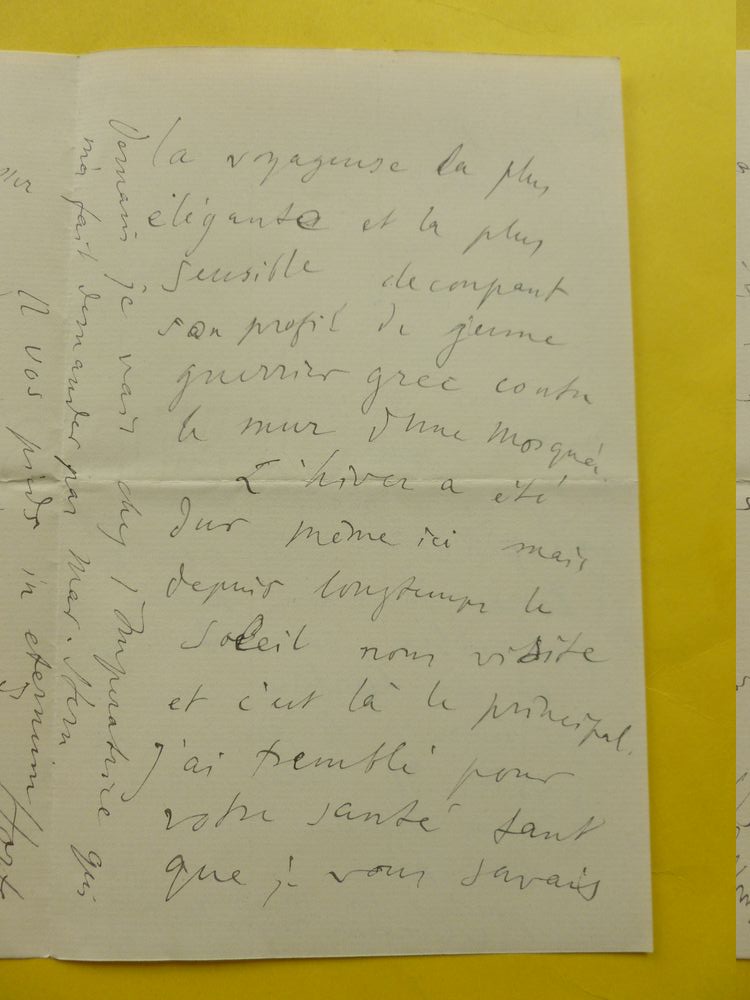 la voyageuse la plus
élégante et la plus
sensible decoupant
son profil de jeune
guerrier grec contre
le mur d'une mosquée.
L'hiver a été
dur même ici mais
depuis longtemps le
soleil nous visite
et c'est là le principal.
j'ai tremblé pour
votre santé tant
que je vous savais
Demain je vais chez l'Imperatrice qui
m'a fait demander par Mar. Stern.
A vos pieds in eternum